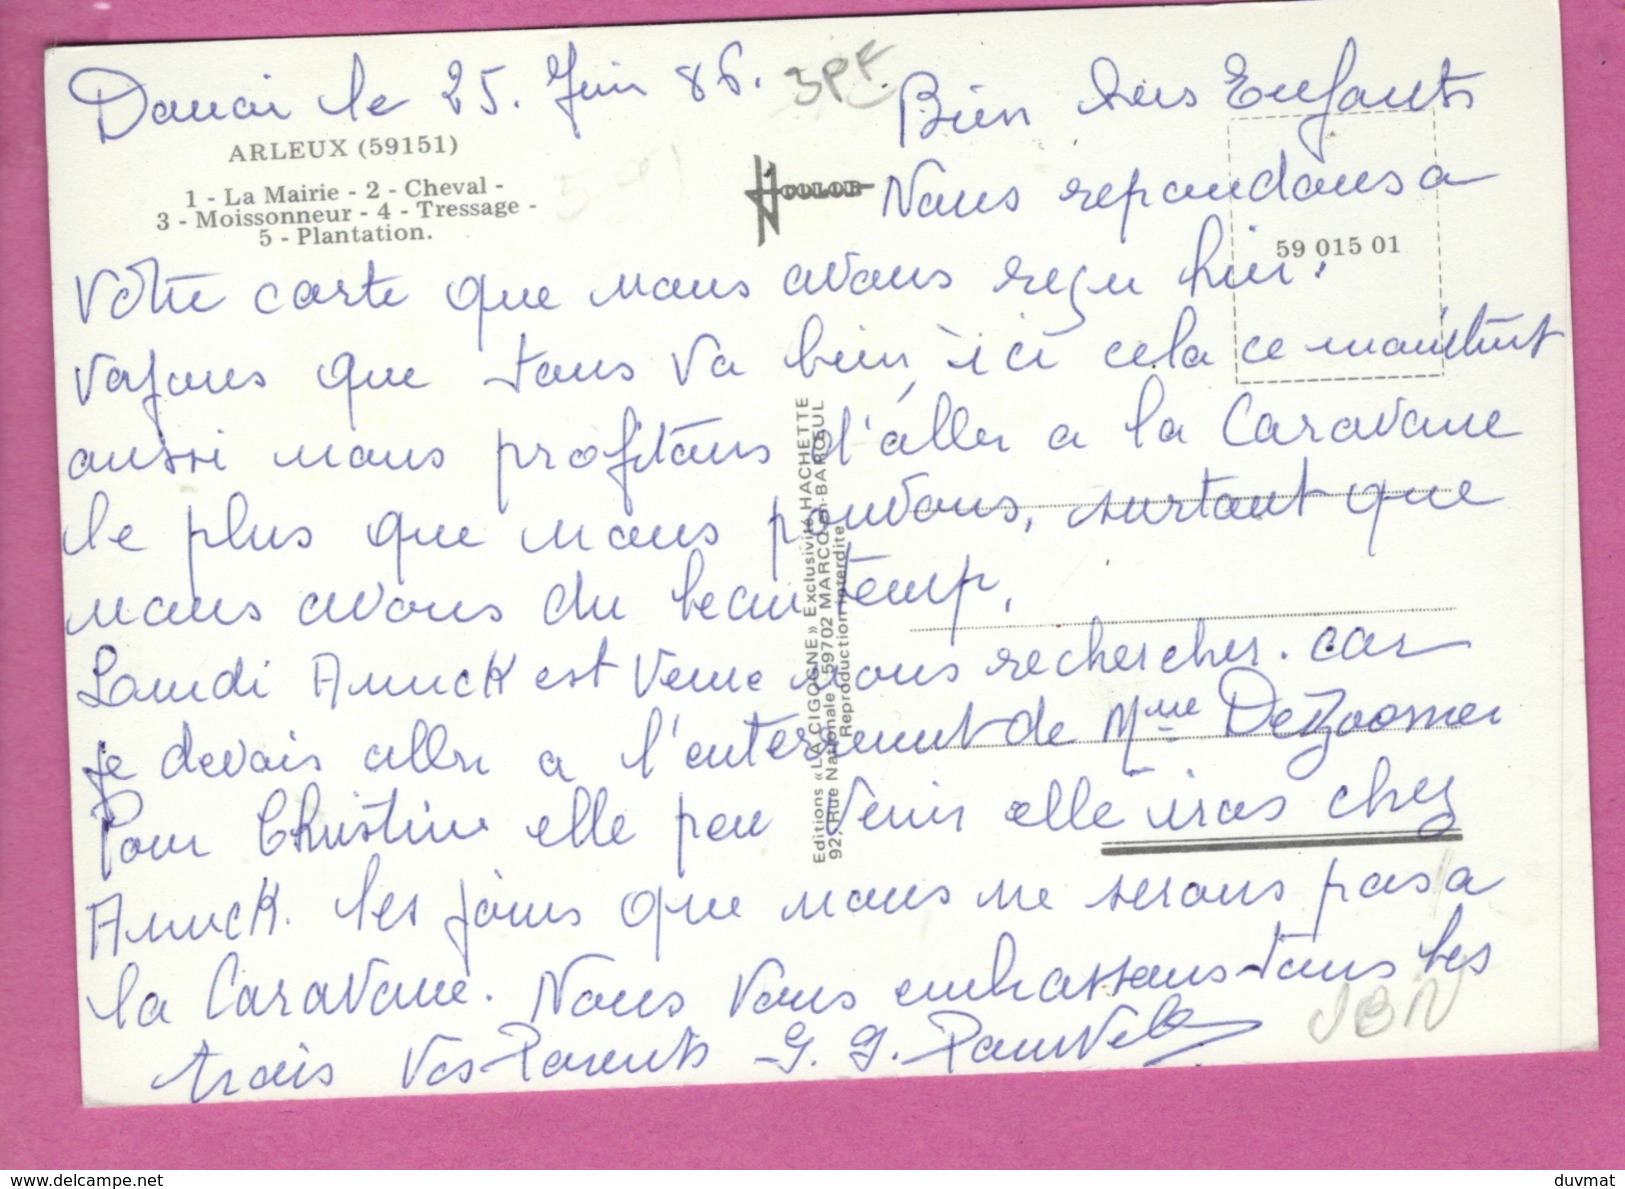 Douai le 25. Juin 86. 3PF
ARLEUX (59151)
1 - La Mairie - 2 - Cheval -
3 - Moissonneur - 4 - Tressage -
5 - Plantation.
COLOR
59 015 01
Bien chers Enfants
Nous repondons a
votre carte que nous avons reçu hier.
voyons que tous va bien, ici cela ce maintient
aussi nous profitons d'aller a la Caravane
le plus que nous pouvons, surtout que
nous avons du beau temp,
Lundi Annick est venue nous rechercher. car
je devais aller a l'enterrement de Mme
Pour Christine elle peu venir elle iras chez
Annick. les jours que nous ne serons pas a
la Caravane. Nous vous embrassons tous les
trois Vos Parents G. G.
Editions «LA CIGOGNE» Exclusivité HACHETTE
92, Rue Nationale 59702 MARCQ-en-BARŒUL
Reproduction interdite
www.delcampe.net
duvmat